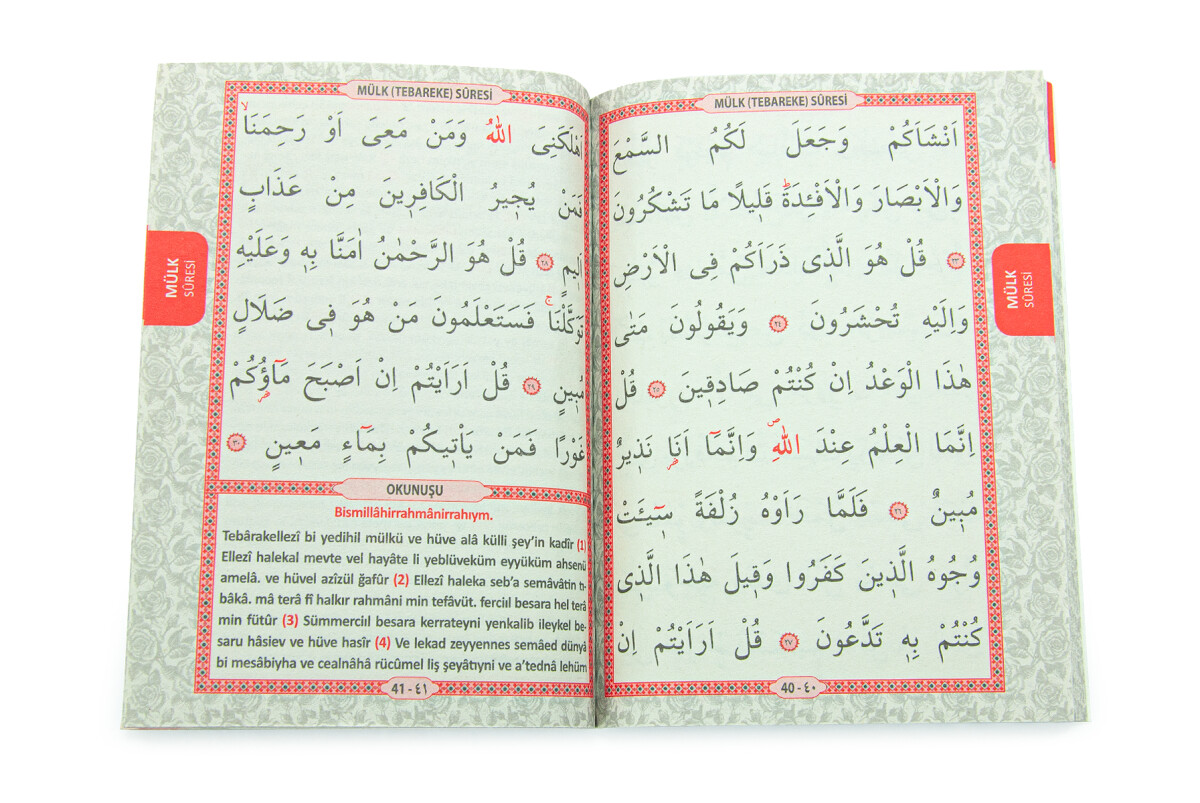 MÜLK (TEBAREKE) SÛRESİ
اَنْشَاَكُمْ وَجَعَلَ لَكُمُ السَّمْعَ
وَالْاَبْصَارَ وَالْاَفْـِٔدَةَۜ قَل۪يلًا مَا تَشْكُرُونَ
٢٣ قُلْ هُوَ الَّذ۪ي ذَرَاَكُمْ فِي الْاَرْضِ
وَاِلَيْهِ تُحْشَرُونَ ٢٤ وَيَقُولُونَ مَتٰى
هٰذَا الْوَعْدُ اِنْ كُنْتُمْ صَادِق۪ينَ ٢٥ قُلْ
اِنَّمَا الْعِلْمُ عِنْدَ اللّٰهِۖ وَاِنَّمَٓا اَنَا نَذ۪يرٌ
مُب۪ينٌ ٢٦ فَلَمَّا رَاَوْهُ زُلْفَةً س۪ٓيـَٔتْ
وُجُوهُ الَّذ۪ينَ كَفَرُوا وَق۪يلَ هٰذَا الَّذ۪ي
كُنْتُمْ بِه۪ تَدَّعُونَ ٢٧ قُلْ اَرَاَيْتُمْ اِنْ
40 - ٤٠
MÜLK
SÛRESİ
MÜLK (TEBAREKE) SÛRESİ
اَهْلَكَنِيَ اللّٰهُ وَمَنْ مَعِيَ اَوْ رَحِمَنَاۙ
فَمَنْ يُج۪يرُ الْكَافِر۪ينَ مِنْ عَذَابٍ
اَل۪يمٍ ٢٨ قُلْ هُوَ الرَّحْمٰنُ اٰمَنَّا بِه۪ وَعَلَيْهِ
تَوَكَّلْنَاۚ فَسَتَعْلَمُونَ مَنْ هُوَ ف۪ي ضَلَالٍ
مُب۪ينٍ ٢٩ قُلْ اَرَاَيْتُمْ اِنْ اَصْبَحَ مَٓاؤُ۬كُمْ
غَوْرًا فَمَنْ يَاْت۪يكُمْ بِمَٓاءٍ مَع۪ينٍ ٣٠
OKUNUŞU
Bismillâhirrahmânirrahıym.
Tebârakellezî bi yedihil mülkü ve hüve alâ külli şey'in kadîr (1)
Ellezî halekal mevte vel hayâte li yeblüveküm eyyüküm ahsenü
amelâ. ve hüvel azîzül ğafûr (2) Ellezî haleka seb'a semâvâtin tı-
bâkâ. mâ terâ fî halkır rahmâni min tefâvüt. ferciıl besara hel terâ
min fütûr (3) Sümmerciıl besara kerrateyni yenkalib ileykel be-
saru hâsiev ve hüve hasîr (4) Ve lekad zeyyennes semâed dünyâ
bi mesâbiyha ve cealnâhâ rücûmel liş şeyâtıyni ve a'tednâ lehüm
41 - ٤١
MÜLK
SÛRESİ